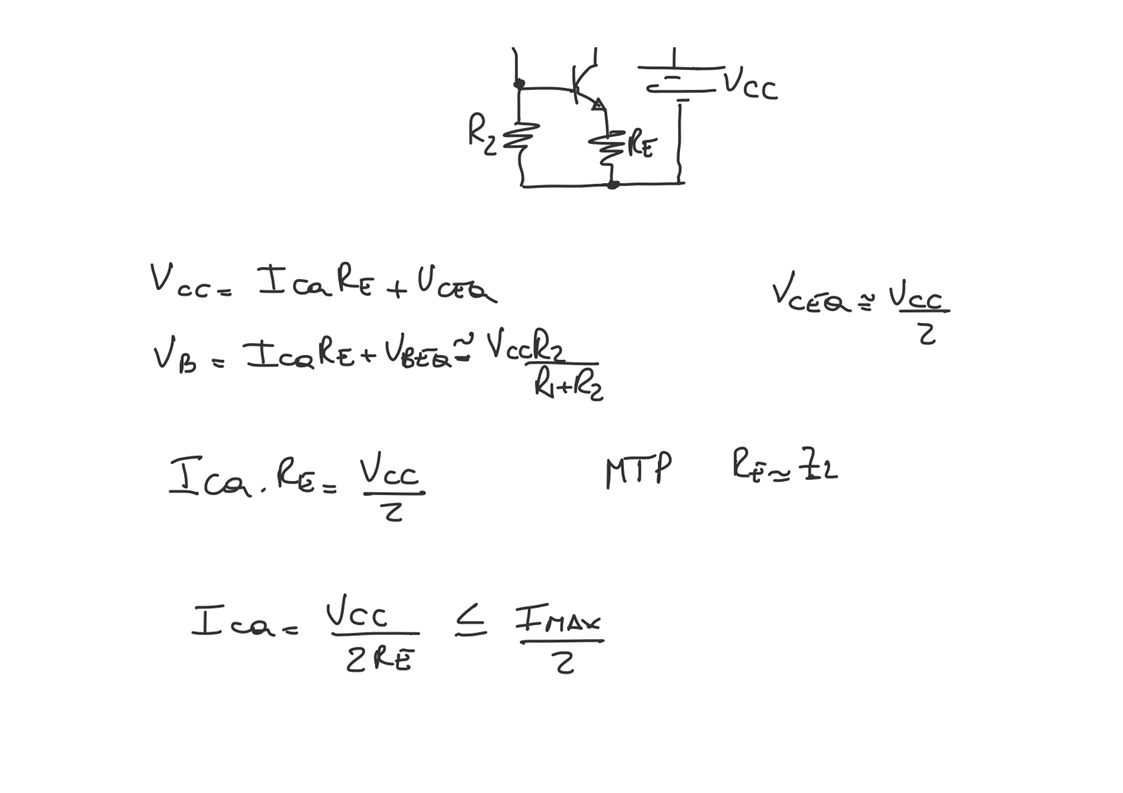 VCC
R2 RE
VCC = ICQ RE + VCEQ VCEQ ≅ VCC/2
VB = ICQ RE + VBEQ ≅ VCC R2/(R1+R2)
ICQ . RE = VCC/2 MTP RE ≃ Z2
ICQ = VCC/(2 RE) ≤ IMAX/2